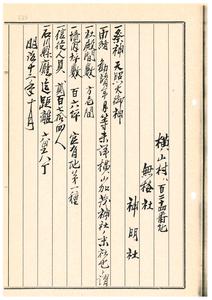 横山村、百三十番地
無格社
神明社
一祭神 天照大御神
由緒 勧請年月等未詳横山加茂神社ノ末社也ト謂
社殿間数 方壱間
一境内坪数 百六坪 官有地第一種
一信徒人員 貳百七拾四人
一石川県庁迄距離 六里八丁
明治十二年十月